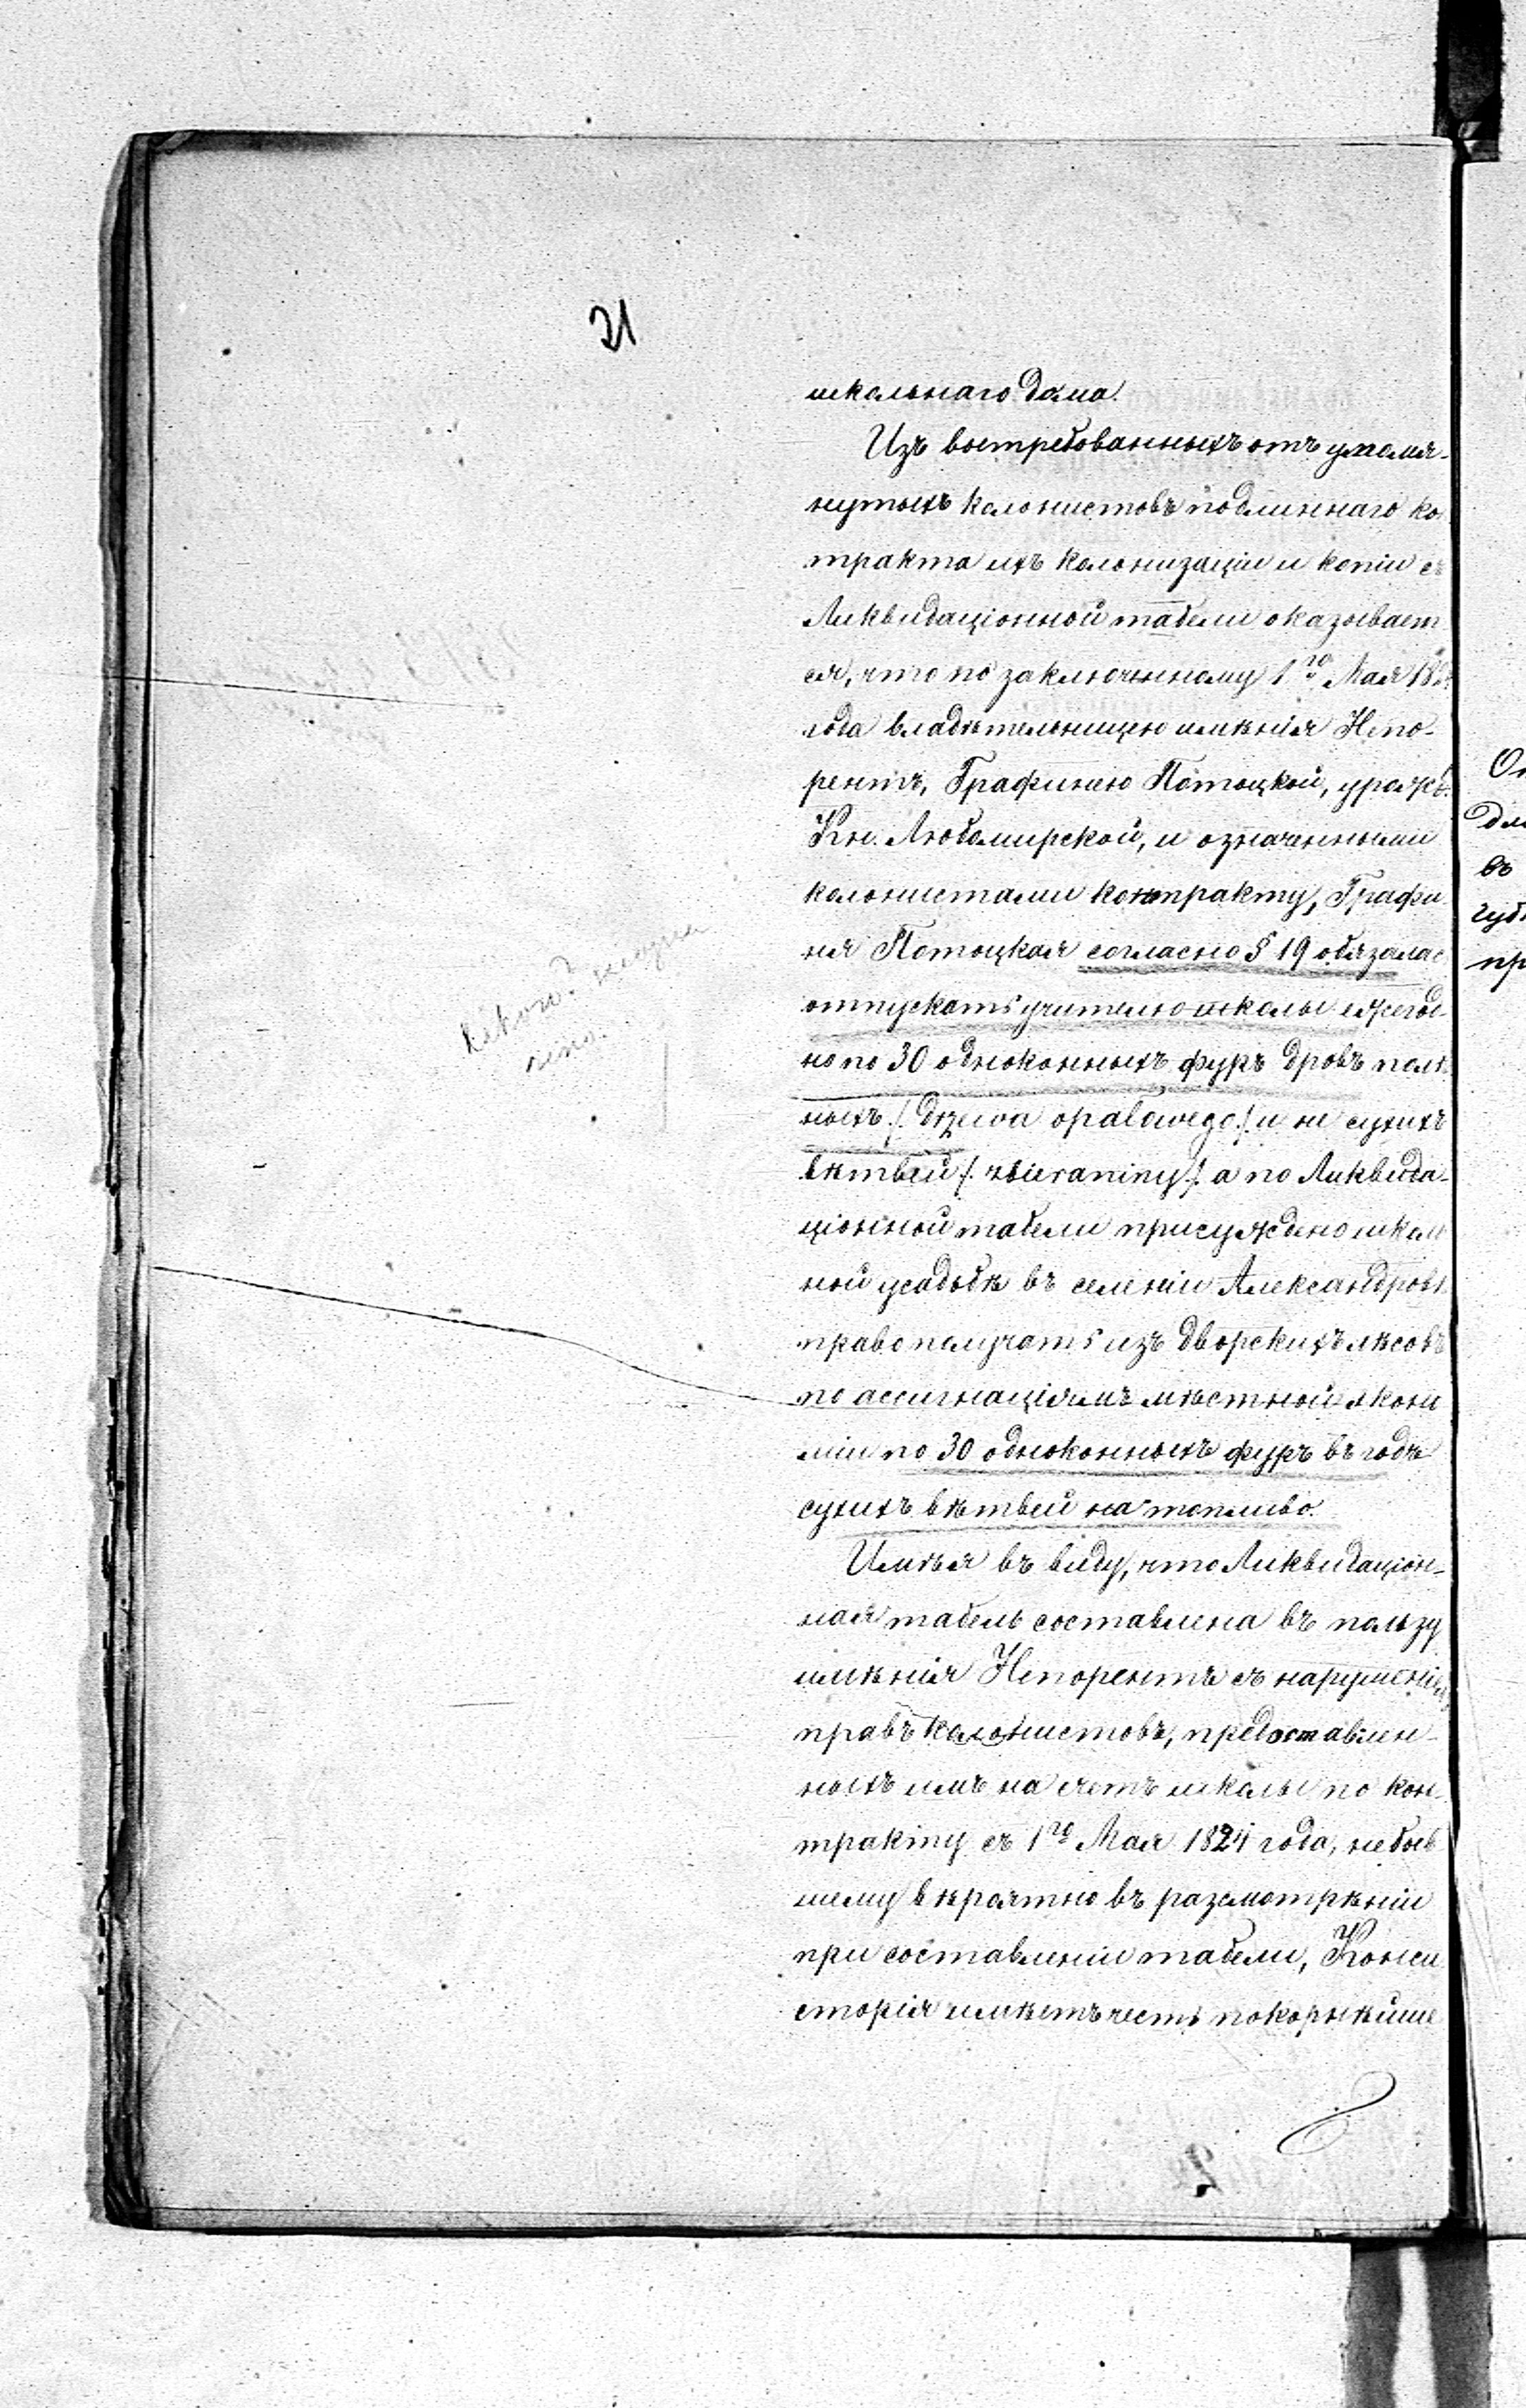 21
школьнаго дома.
Изъ вытребованныхъ отъ упомя-
нутыхъ колонистовъ подлиннаго ко
тракта ихъ колонизаціи и копіи съ
Ликвидаціонной табели оказывает
ся, что по заключенному 1го Мая 182
года владѣтельницею имѣнія Непо-
рентъ, Графинею Потоцкой, урожд.
Кн. Любомирской, и означенными
колонистами контракту, Графи
ня Потоцкая согласно § 19 обязалас
отпускать учителю школы ежегод-
но по 30 одноконныхъ фуръ дровъ полѣ
ныхъ /. drzewa opałowego ./ и не сухихъ
вѣтвей /. zbieraniny ./ а по Ликвида-
ціонной табели присуждено школь
ной усадьбѣ въ селеніи Александровѣ
право получать изъ дворскихъ лѣсовъ
по ассигнаціямъ мѣстной экон
міи по 30 одноконныхъ фуръ въ годъ
сухихъ вѣтвей на топливо.
Имѣя въ виду, что Ликвидаціон-
ная табель составлена въ пользу
имѣнія Непорентъ съ нарушеніем
правъ колонистовъ, предоставлен-
ныхъ имъ на счетъ школы по кон-
тракту съ 1го Мая 1824 года, небыв
шему вѣроятно въ разсмотрѣніи
при составленіи табели, Конси
сторія имѣетъ честь покорнѣйше
дл
въ
губ
пр